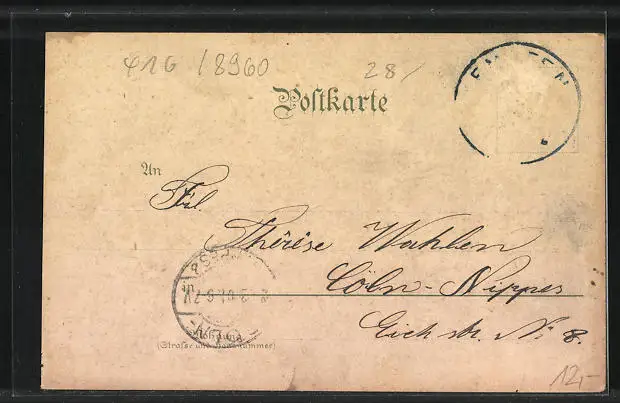 416 / 8960
28 /
Postkarte
An
Frl.
Thérèse Wahlen
Cöln-Nippes
Eich str. No 8.
Wohnung
(Strasse und Hausnummer)
12,-